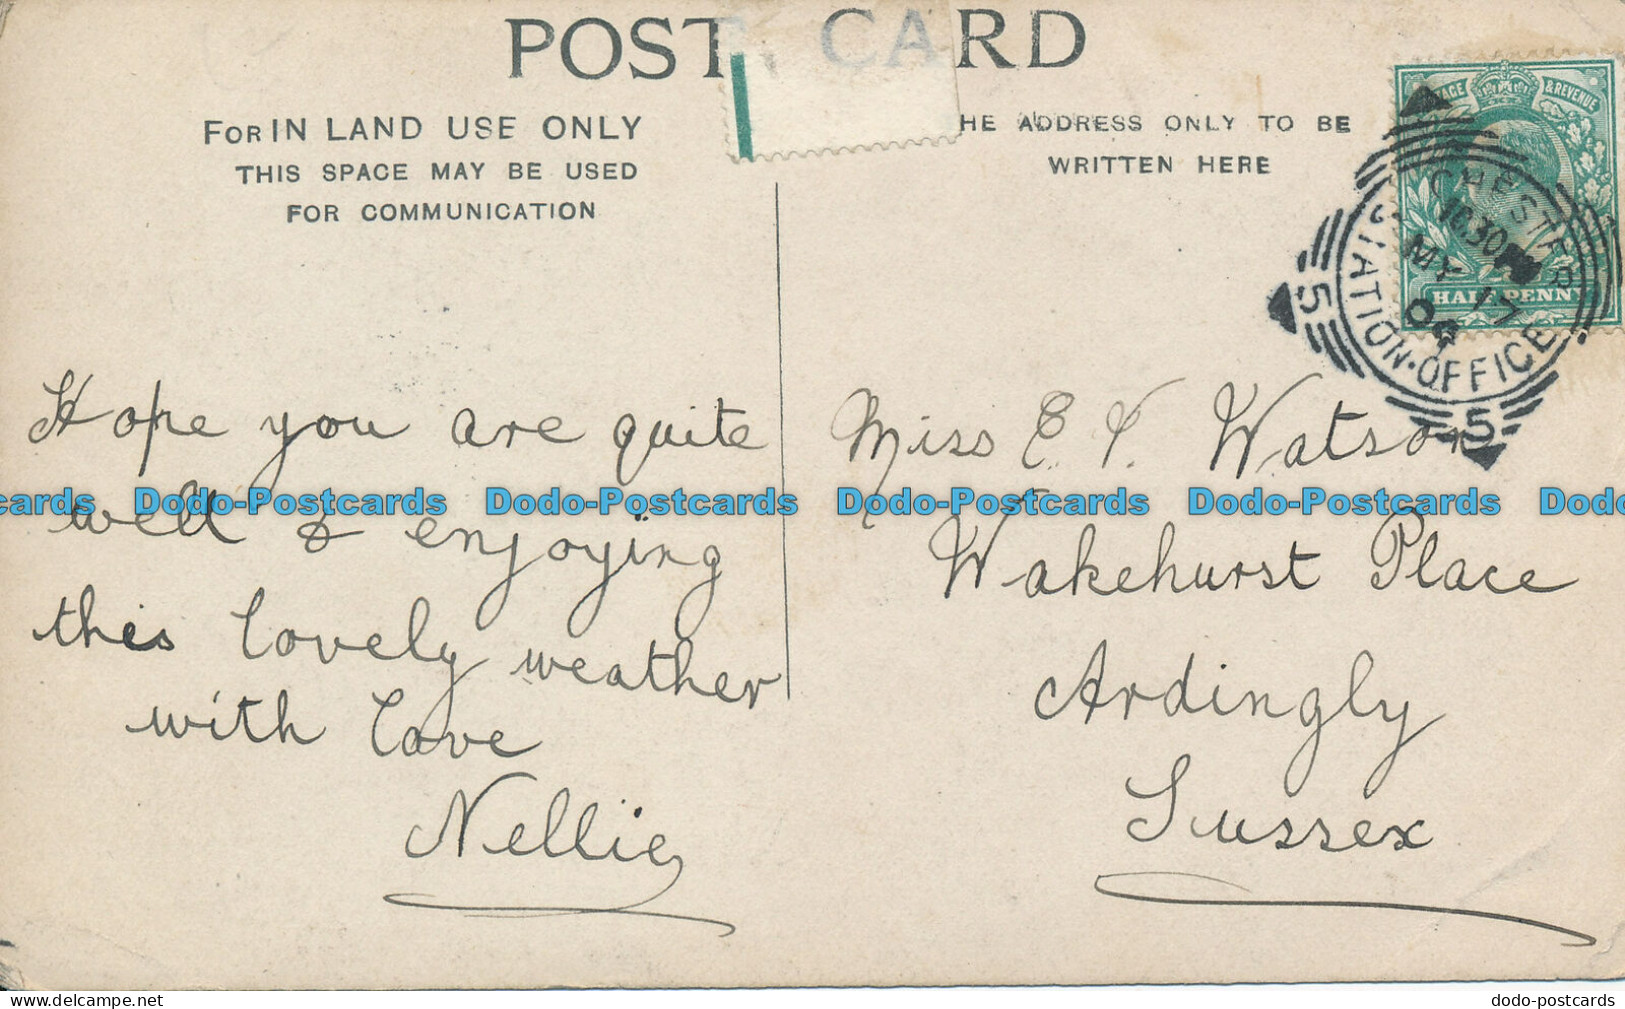 POST CARD
FOR IN LAND USE ONLY
THIS SPACE MAY BE USED
FOR COMMUNICATION
HE ADDRESS ONLY TO BE
WRITTEN HERE
& REVENUE
HALF PENNY
CHESTER
10.30 PM
MY 17
STATION·OFFICE
5
5
Hope you are quite
well & enjoying
this lovely weather
with love
Nellie
Miss E. V. Watson
Wakehurst Place
Ardingly
Sussex
cards Dodo-Postcards Dodo-Postcards Dodo-Postcards Dodo-Postcards Dodo
dodo-postcards.com
dodo-postcards